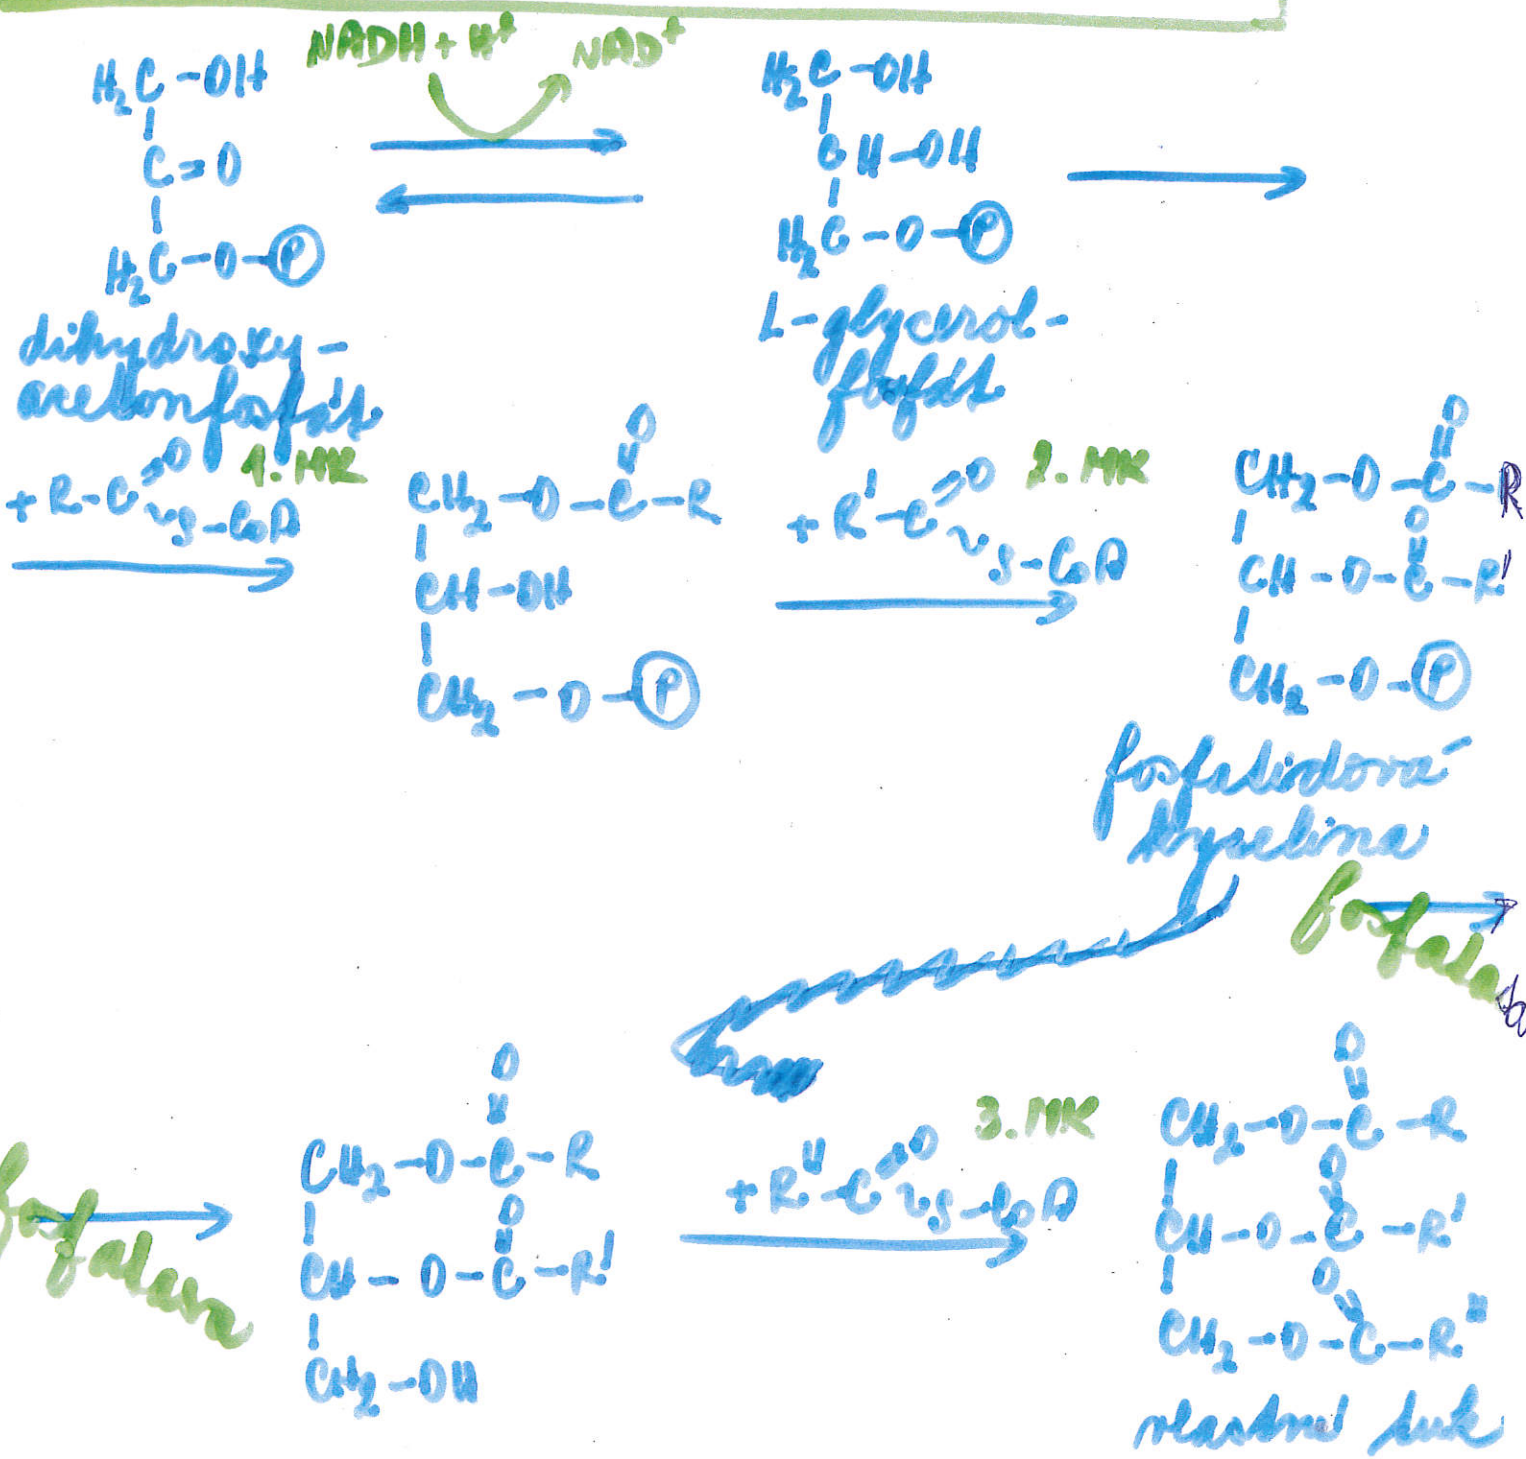 NADH + H⁺ NAD⁺
H₂C - OH
C = O
H₂C - O - P
dihydroxy-
acetonfosfát
H₂C - OH
CH - OH
H₂C - O - P
L-glycerol-
fosfát
+ R - C = O ~ S - CoA
1. MK
O
CH₂ - O - C - R
CH - OH
CH₂ - O - P
+ R' - C = O ~ S - CoA
2. MK
O
CH₂ - O - C - R
O
CH - O - C - R'
CH₂ - O - P
fosfatidová
kyselina
fosfatasa
fosfatasa
O
CH₂ - O - C - R
O
CH - O - C - R'
CH₂ - OH
+ R" - C = O ~ S - CoA
3. MK
O
CH₂ - O - C - R
O
CH - O - C - R'
O
CH₂ - O - C - R"
vlastní tuk